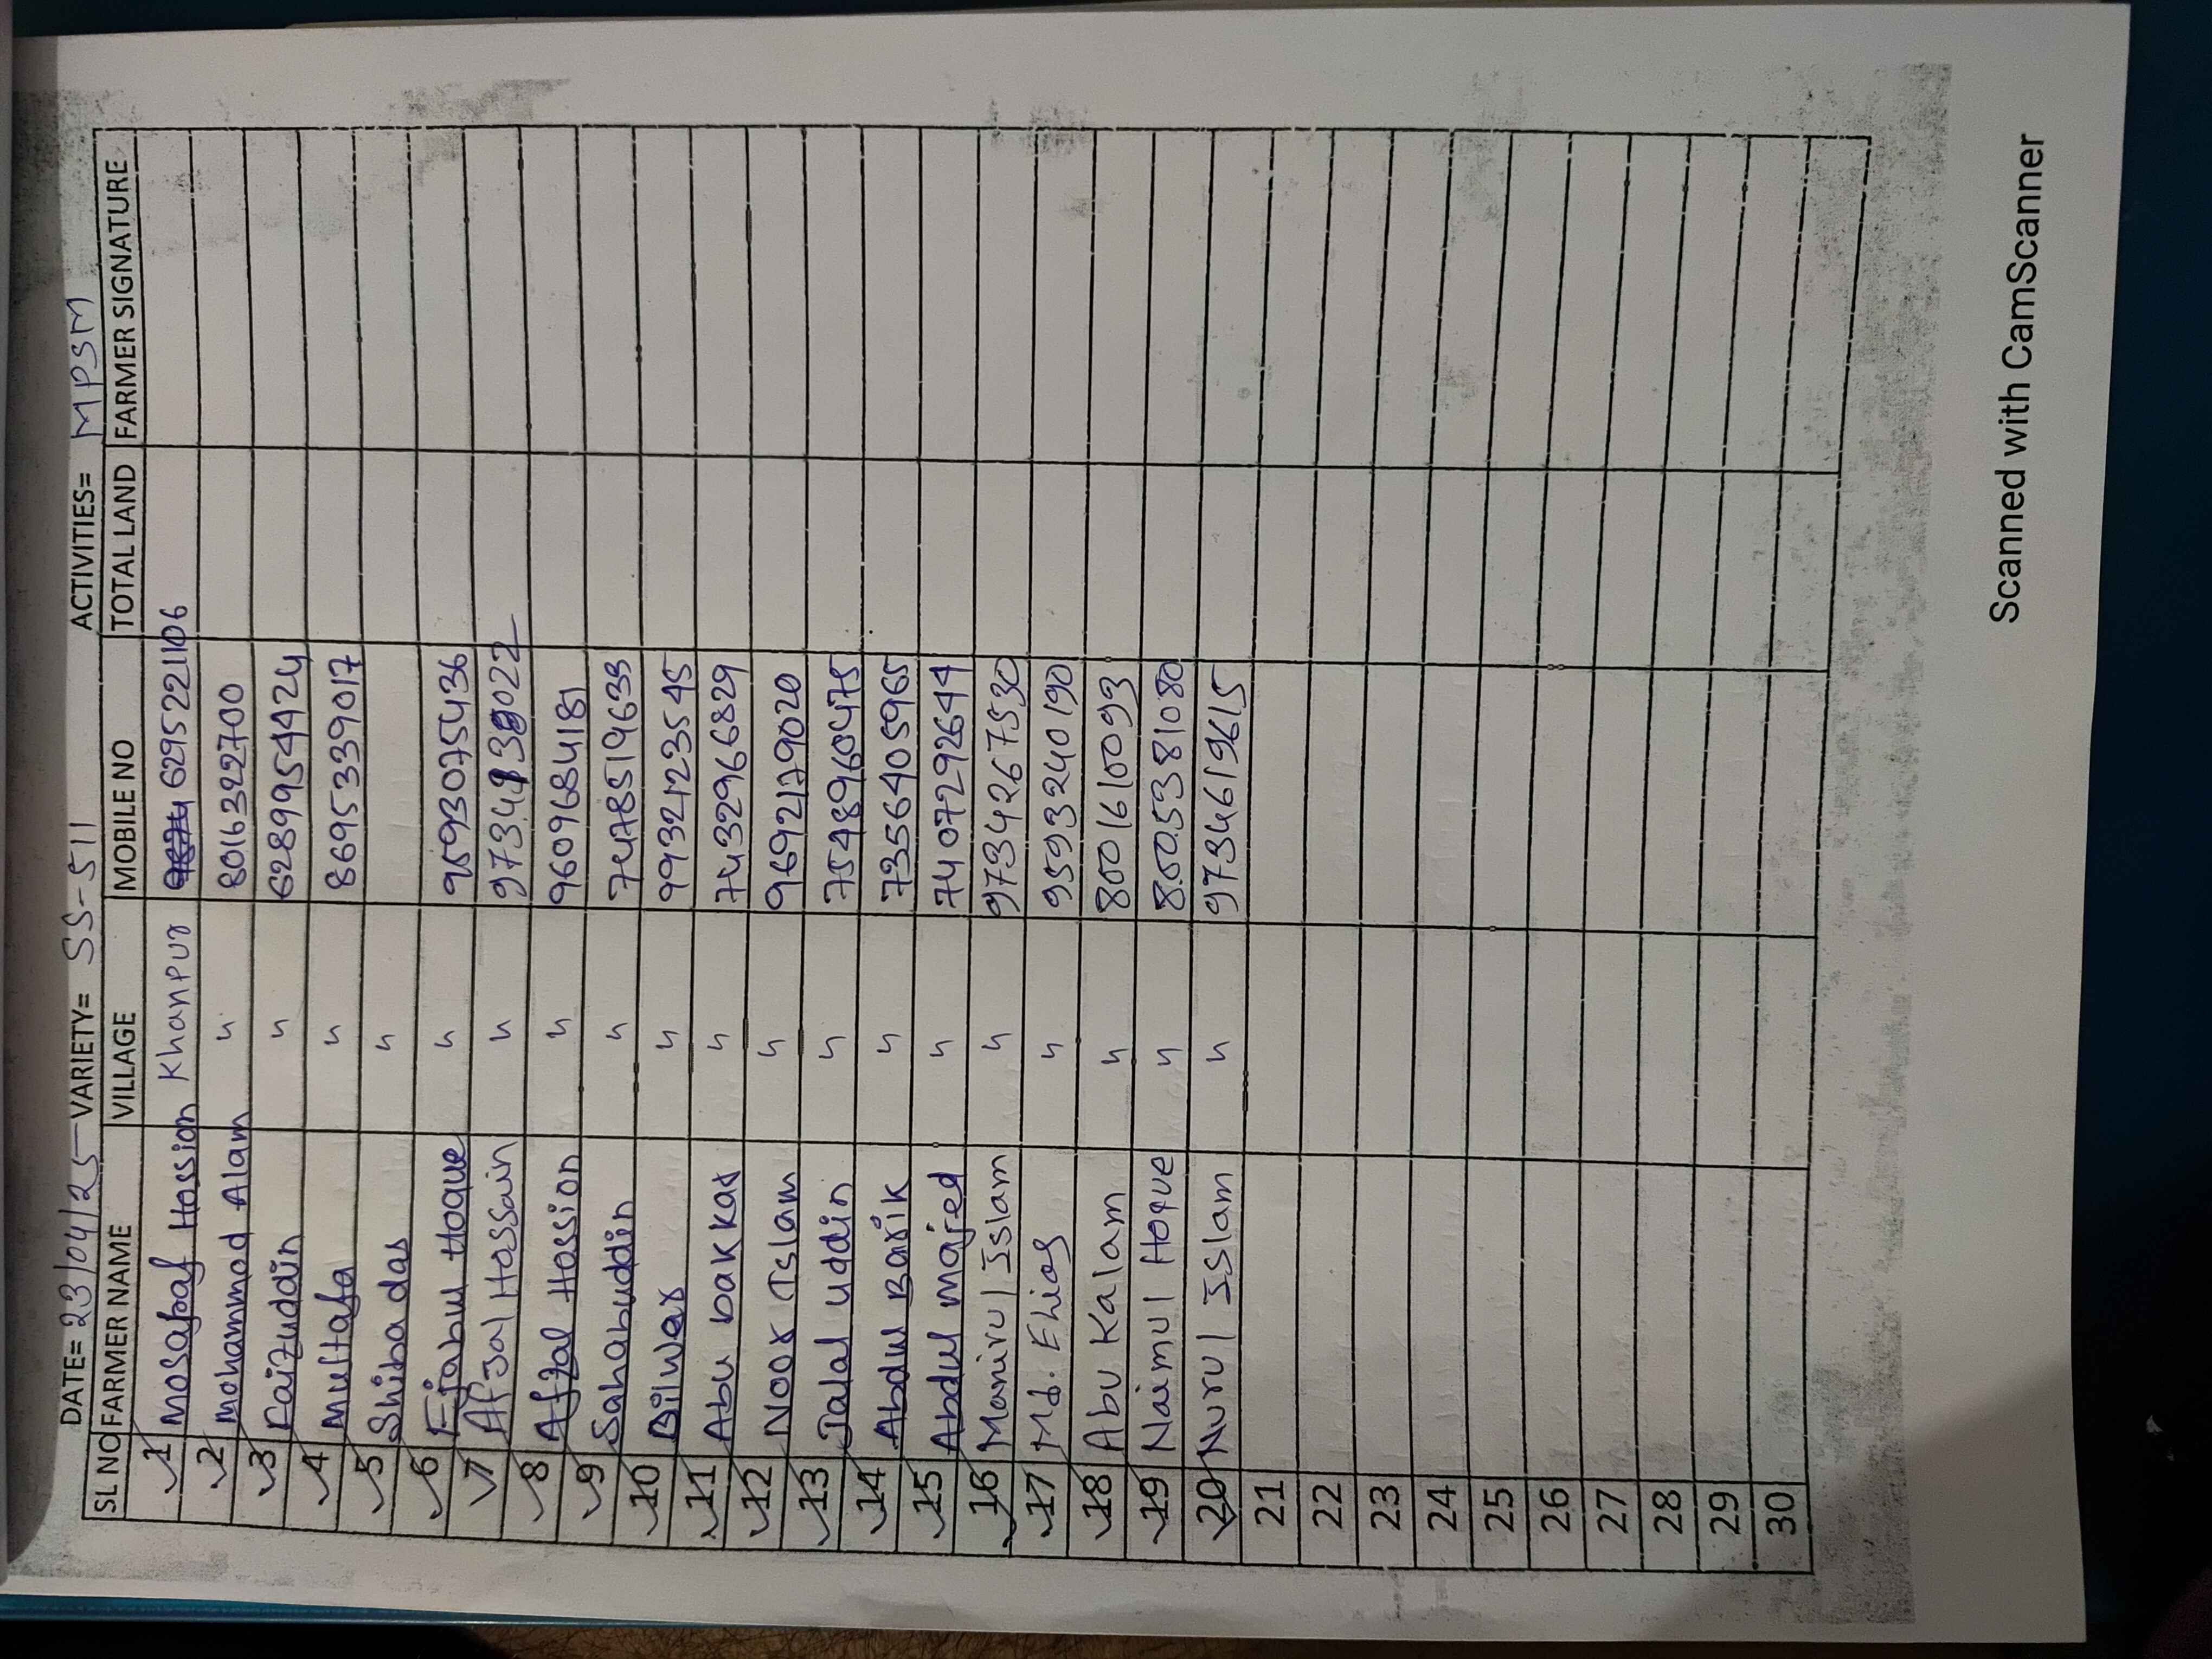 DATE= 23/04/25 VARIETY= SS-511 ACTIVITIES= MPSM
SL NO FARMER NAME VILLAGE MOBILE NO TOTAL LAND FARMER SIGNATURE
1 Mosafraf Hossion Khanpur 6295221106
2 Mohammod Alam " 8016322700
3 Faizuddin " 6289954424
4 Mustafa " 8695339017
5 Shiba das "
6 Ejabul Hoque " 9593075436
7 Afzal Hossain "
8 Afzal Hossion " 9609684181
9 Sahabuddin " 7478519639
10 Dilwar " 9932123545
11 Abu bakkar " 7432966829
12 Noor Islam " 9692179020
13 Jalal uddin " 7548960475
14 Abdul Barik " 7356405965
15 Abdul majed " 7407292644
16 Manirul Islam " 9734267530
17 Md. Elias " 9593240190
18 Abu Kalam " 8001610093
19 Naimul Hoque " 8505381080
20 Nurul Islam " 9734619615
21
22
23
24
25
26
27
28
29
30
Scanned with CamScanner